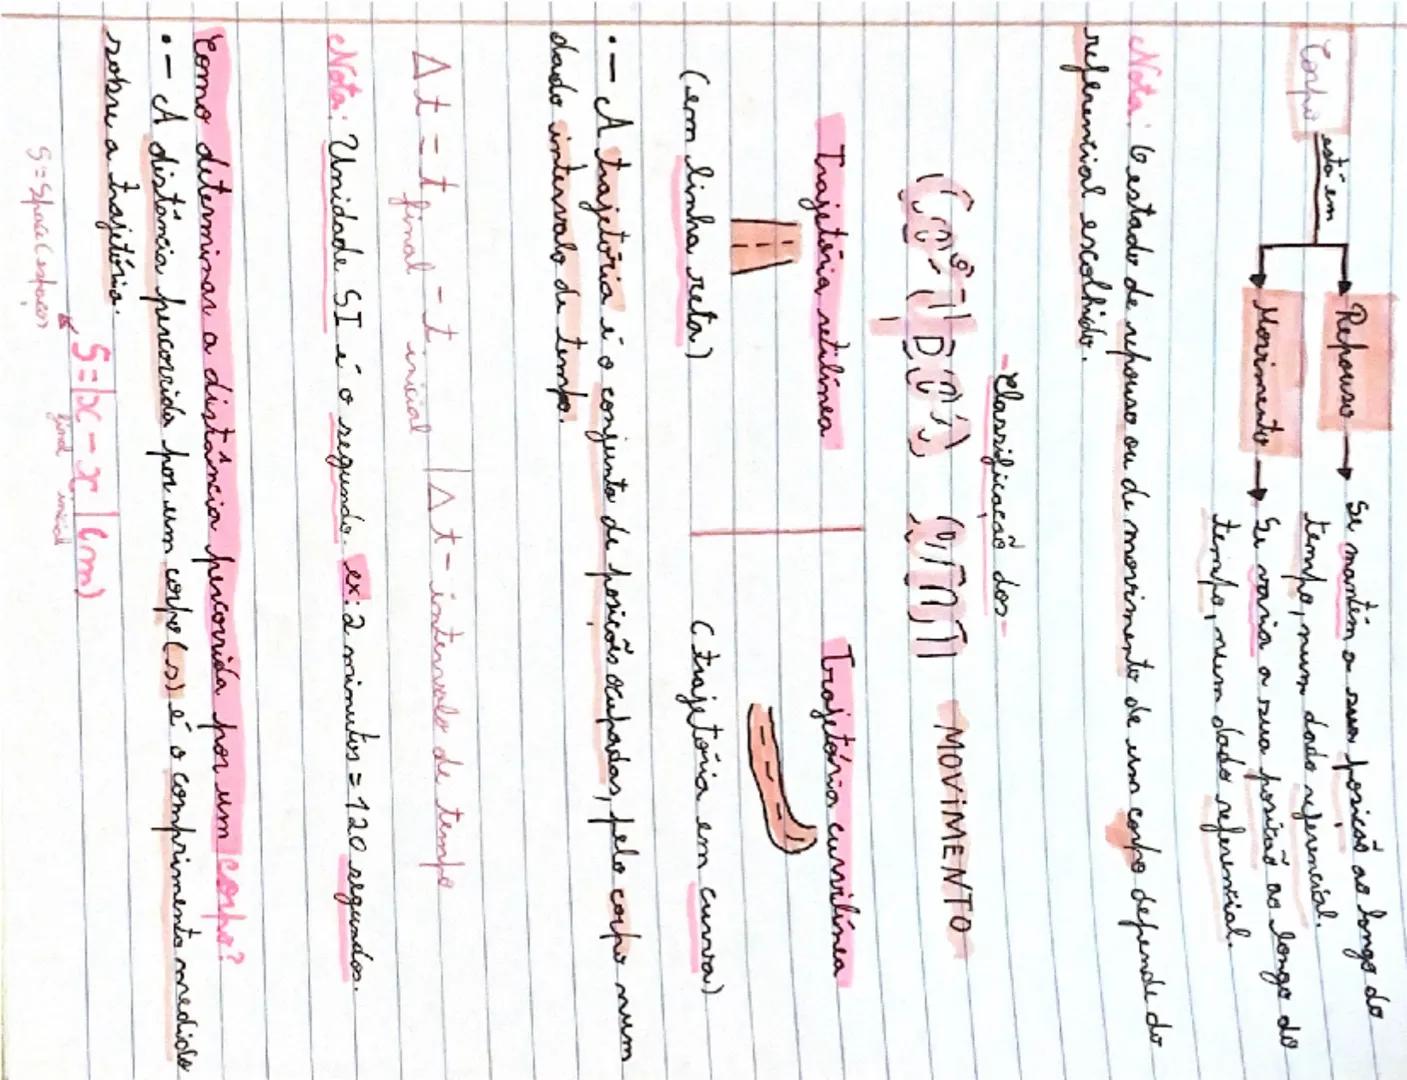 Corpo está em
Repouso → Se mantém a sua posição ao longo do
tempo, num dado referencial.
Movimento → Se varia a sua posição ao longo do
tempo, num dado referencial.
Nota: O estado de repouso ou de movimento de um corpo depende do
referencial escolhido.
- Classificação dos -
MOVIMENTO
Trajetória retilínea
Trajetória curvilínea
(em linha reta)
(trajetória em curva)
•— A trajetória é o conjunto de posições ocupadas, pelo corpo num
dado intervalo de tempo.
Δt = t final - t inicial | Δt - intervalo de tempo
Nota: Unidade SI é o segundo. ex: 2 minutos = 120 segundos.
Como determinar a distância percorrida por um corpo?
•— A distância percorrida por um corpo (s) é o comprimento medido
sobre a trajetória.
S = |x final - x inicial| (m)
S = Space (espaço)